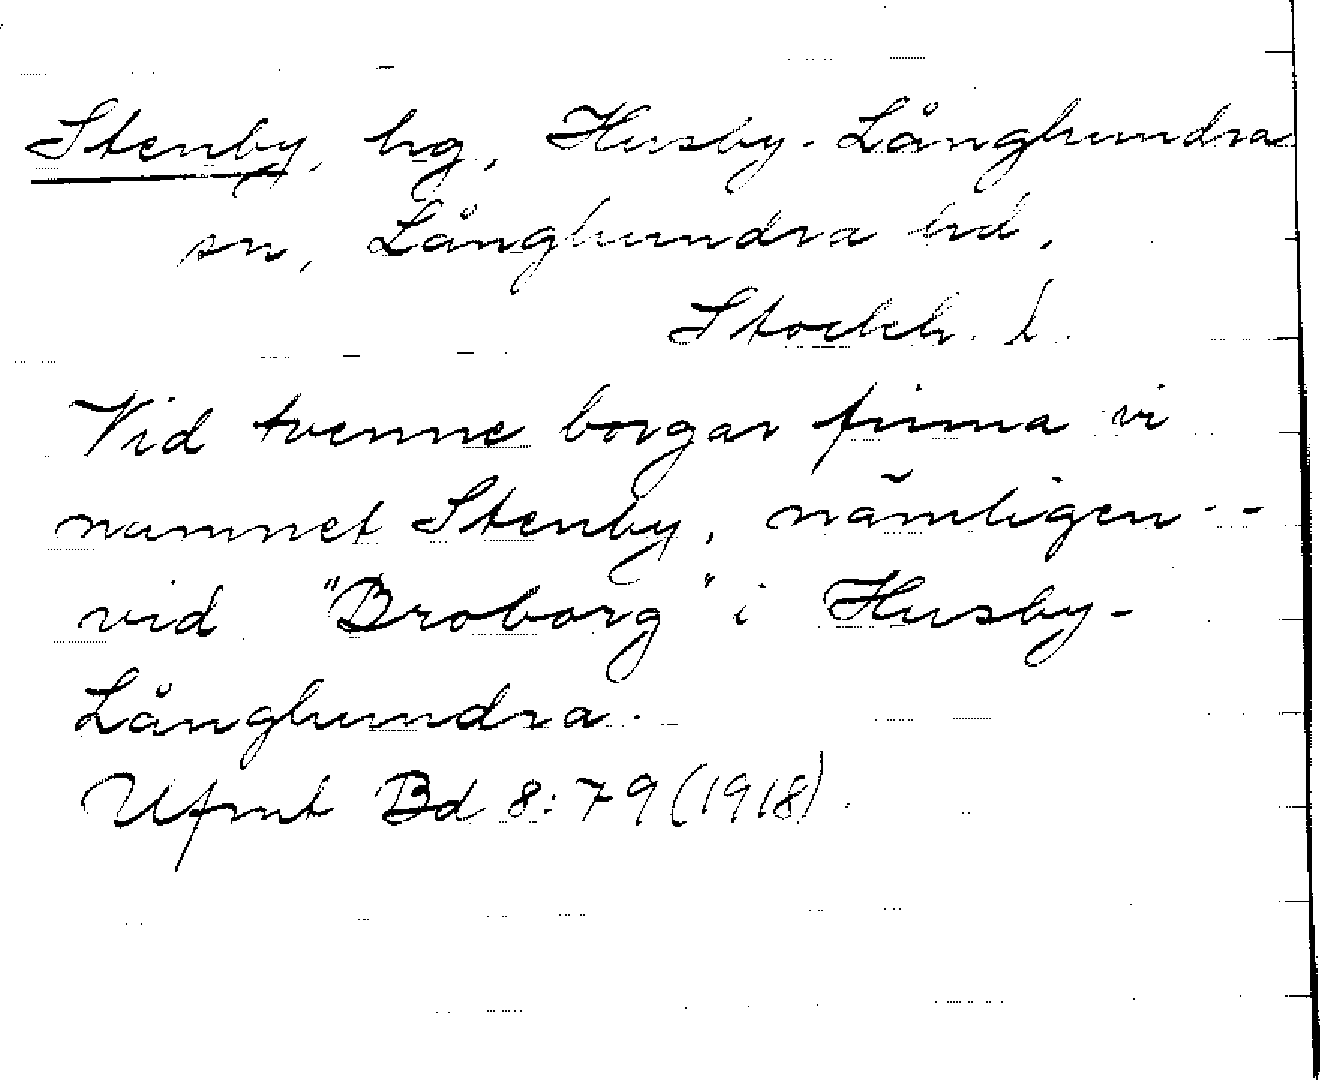 Stenby, hg, Husby-Långhundra
sn, Långhundra hd,
Stockh. l.
Vid tvenne borgar finna vi
namnet Stenby, nämligen --
vid "Broborg" i Husby-
Långhundra.
Ufmt Bd 8:79 (1918).